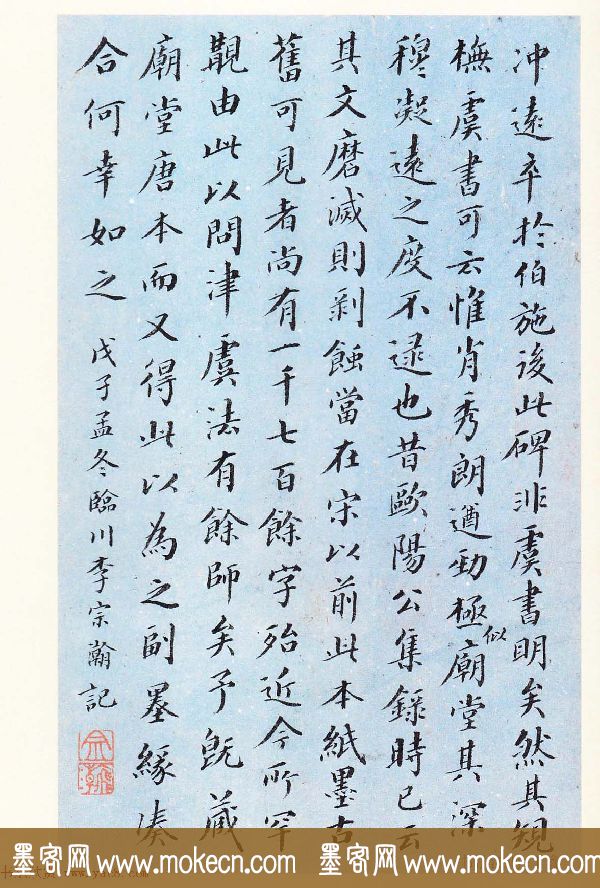 冲遠卒於伯施後此碑非虞書明矣然其規
橅虞書可云惟肖秀朗遒勁極似廟堂其深
穆凝遠之度不逮也昔歐陽公集錄時已云
其文磨滅則剥蝕當在宋以前此本紙墨古
舊可見者尚有一千七百餘字殆近今所罕
覯由此以問津虞法有餘師矣予旣藏
廟堂唐本而又得此以為之副墨緣湊
合何幸如之 戊子孟冬臨川李宗瀚記
墨客网 www.mokecn.com 墨客网 www.mokecn.com